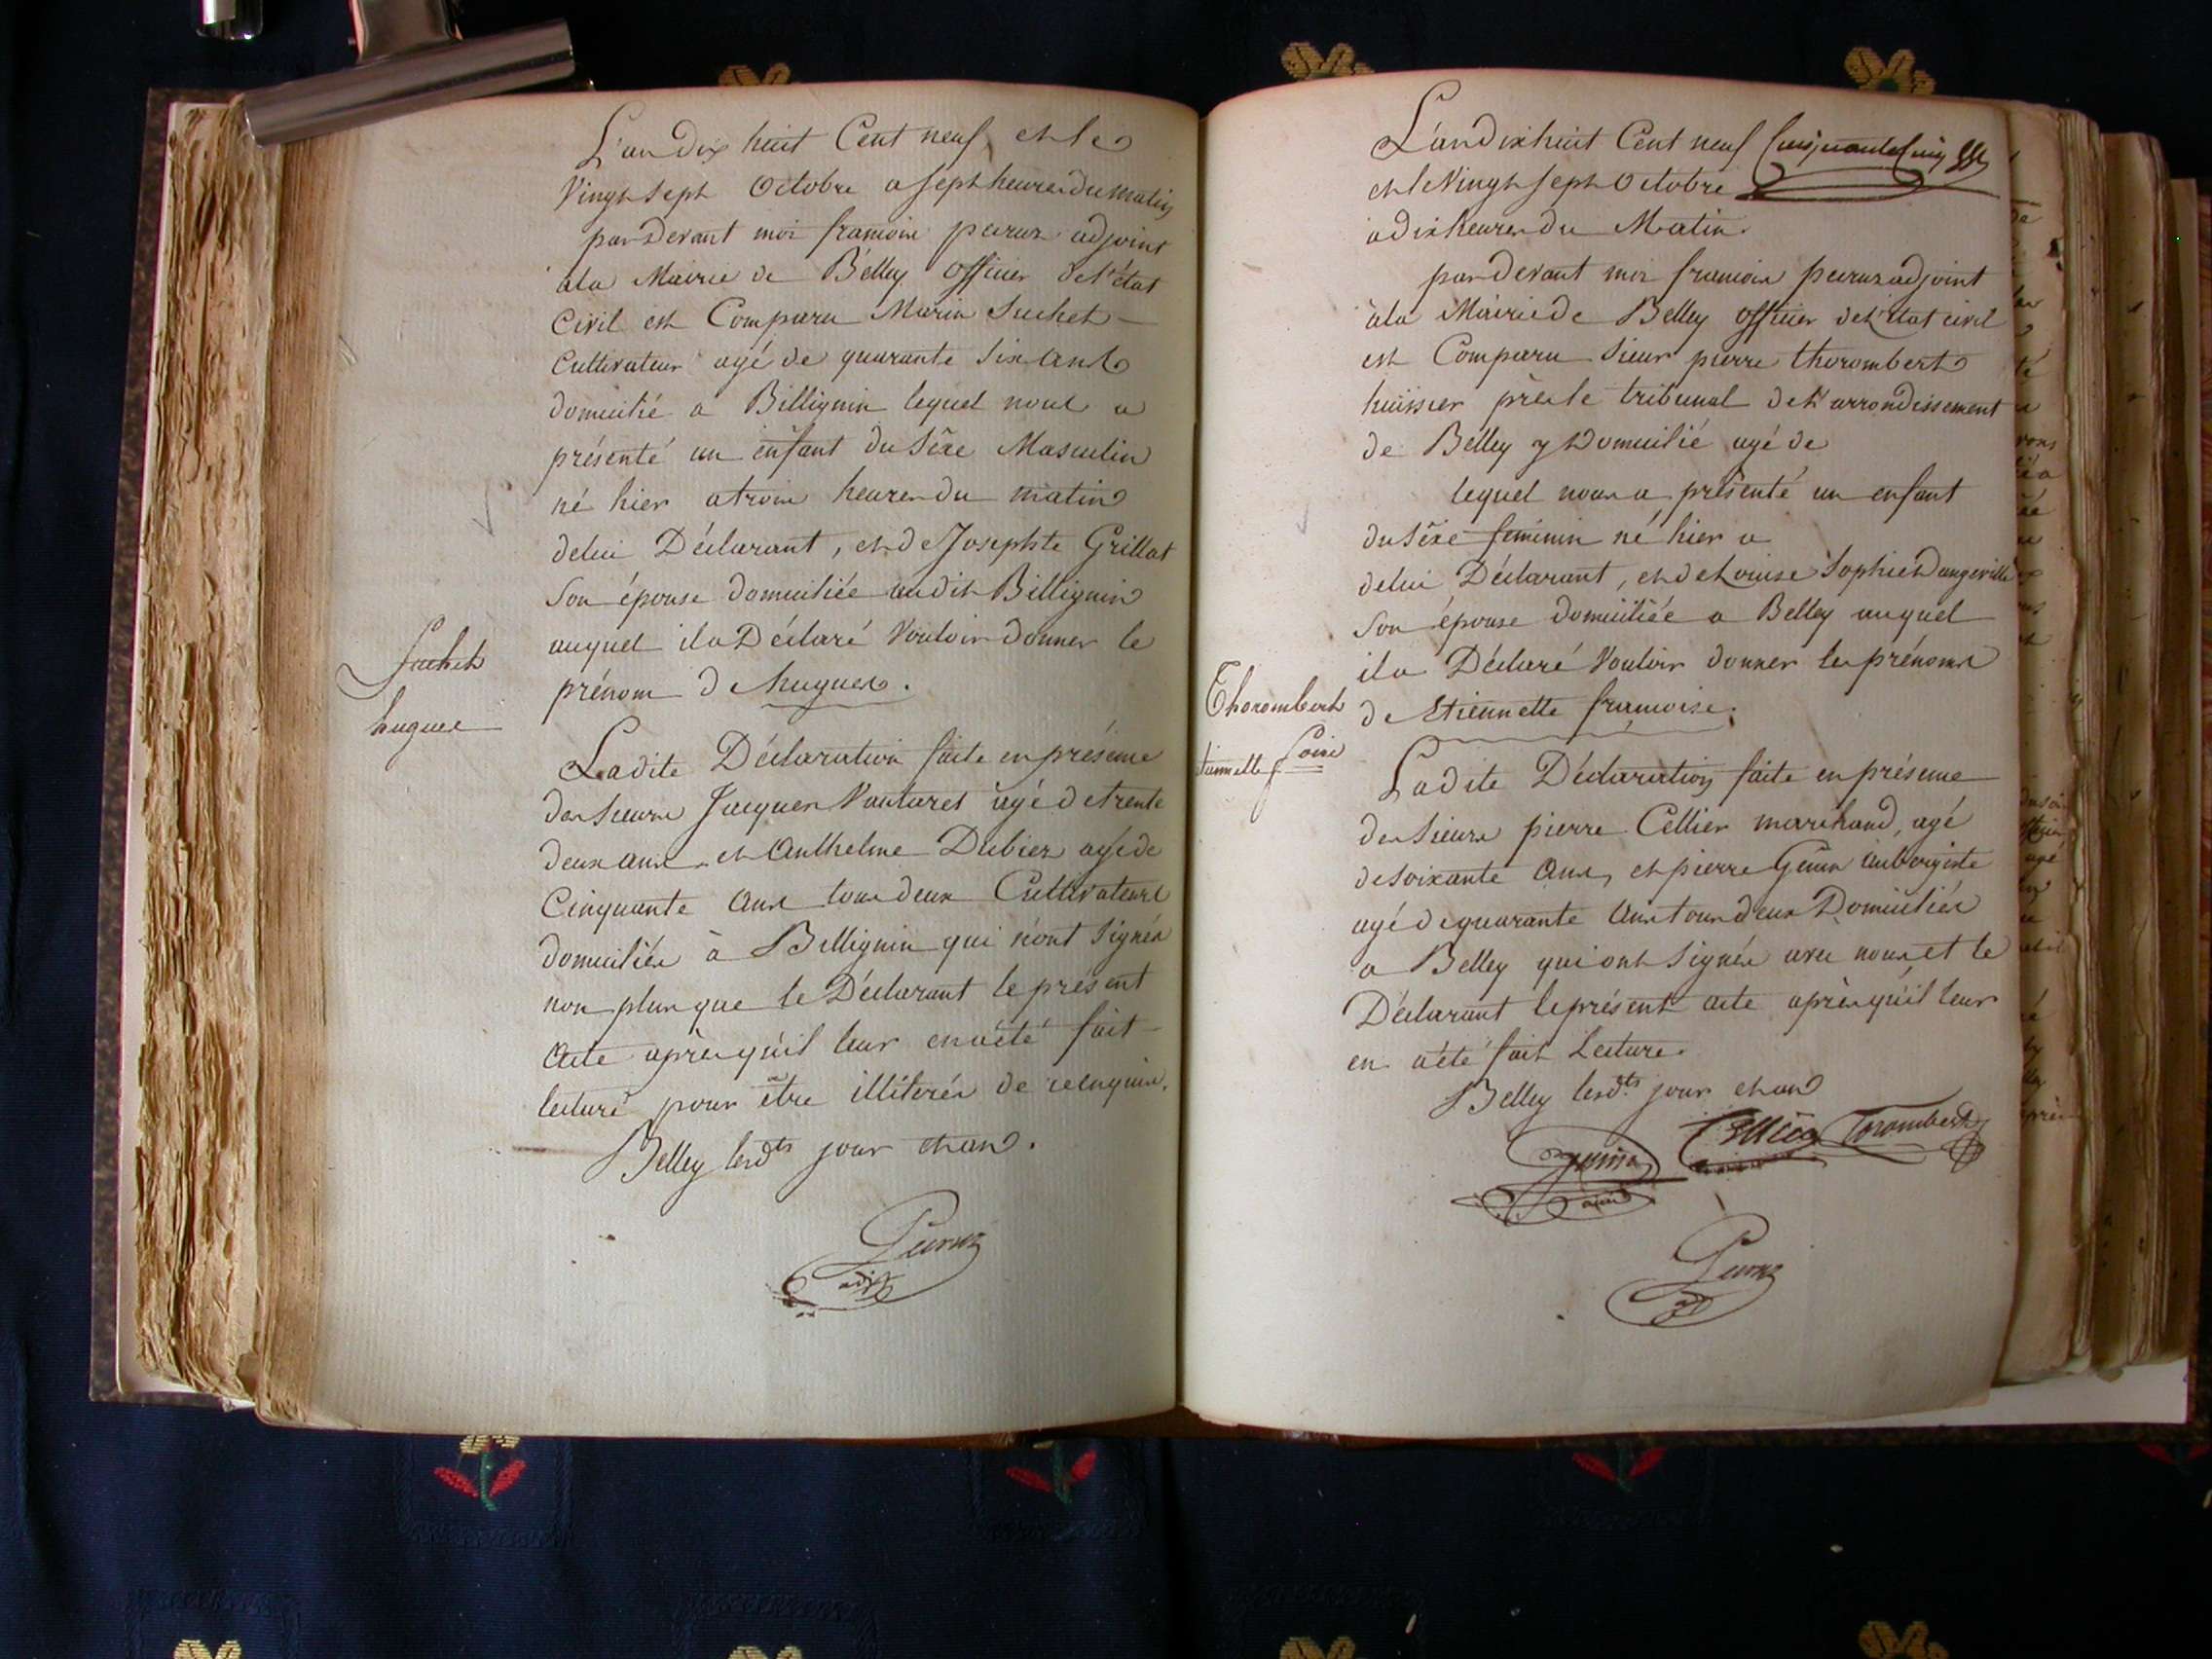 L'an dix huit Cent neuf et le
Vingt Sept Octobre a sept heures du matin
par Devant moi francois peuruz adjoint
a la Mairie de Bélley officier de l'état
Civil est Comparu Marin Suchet
Cultivateur agé de quarante Six ans
domicilié a Billignin lequel nous a
présenté un enfant du Sêxe Masculin
né hier a trois heures du matin
de lui Déclarant, et de Josephte Grillot
Son épouse domiciliée audit Billignin
auquel il a Déclaré Vouloir donner le
prénom de hugues.
Suchet
hugues
Ladite Déclaration faite en présence
des Sieurs Jacques Vautaret agé de trente
deux ans et Anthelme Dubiez agé de
Cinquante ans tous deux Cultivateurs
domiciliés à Billignin qui n'ont Signés
non plus que le Déclarant le présent
acte après qu'il leur en a été fait
lecture pour être illiterés de ce enquis.
Belley lesdts jour et an.
Peuruz
adjt
L'an dix huit Cent neuf Cinquante Cinq
et le Vingt Sept Octobre
a dix heures du Matin.
par devant moi francois peuruz adjoint
à la Mairie de Belley officier de l'état civil
est Comparu Sieur pierre thorombert
huissier près le tribunal de l'arrondissement
de Bélley y Domicilié agé de
lequel nous a présenté un enfant
du Sêxe feminin né hier a
de lui Déclarant, et de Louise Sophie Dangeville
Son épouse domiciliée a Belley auquel
il a Déclaré Vouloir donner les prénoms
de Etiennette francoise.
Thorombert
tiennette foise
Ladite Déclaration faite en présence
des Sieurs pierre Cellier marchand, agé
de soixante ans, et pierre Genin aubergiste
agé de quarante ans tous deux Domiciliés
a Belley qui ont Signés avec nous et le
Déclarant le présent acte après qu'il leur
en a été fait Lecture.
Belley lesdts jour et an
Genin Cellier Thorombert
Peuruz